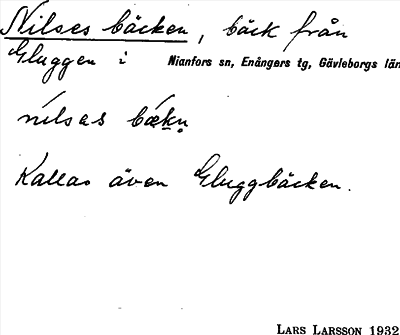 Nilses bäcken, bäck från
Gluggen i Nianfors sn, Enångers tg, Gävleborgs län
nílsas bǽkn̥
Kallas även Gluggbäcken.
LARS LARSSON 1932